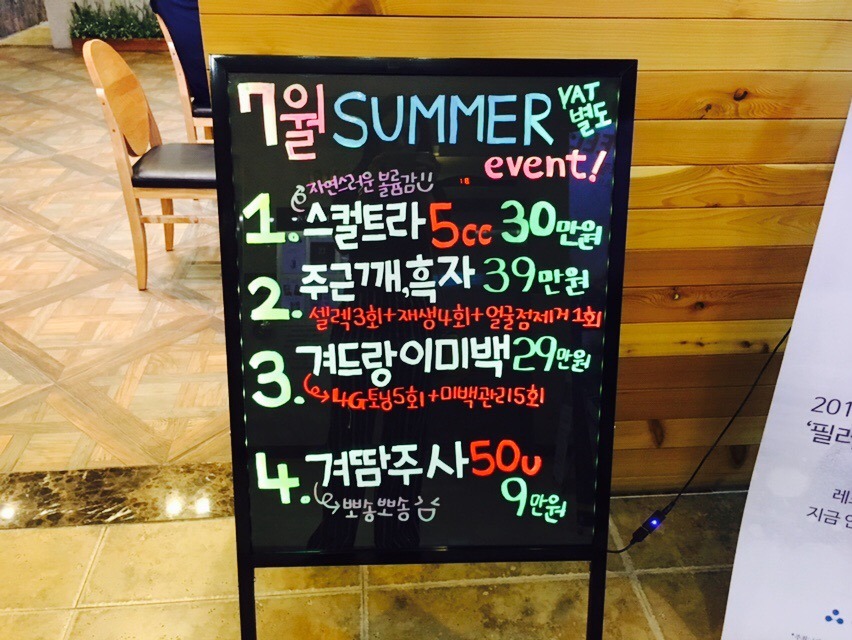 7월 SUMMER VAT
별도
event!
자연스러운 볼륨감
1. 스컬트라 5cc 30만원
2. 주근깨,흑자 39만원
셀렉3회+재생4회+얼굴점제거1회
3. 겨드랑이미백 29만원
4G토닝5회+미백관리5회
4. 겨땀주사 50u
뽀송뽀송 9만원
201
'필러
레
지금